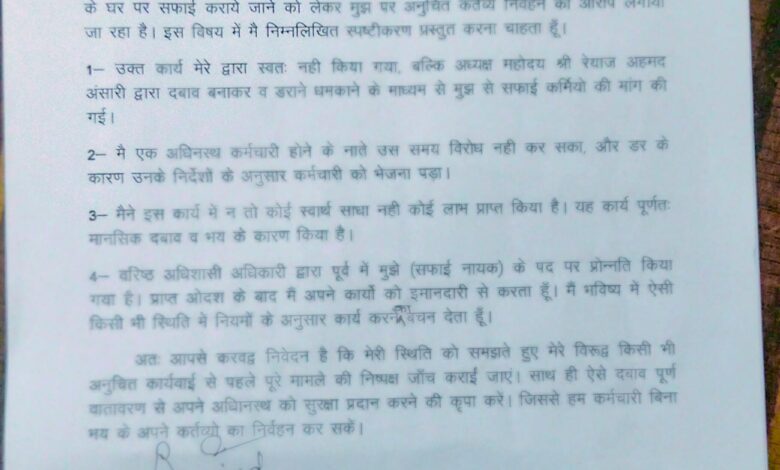 के घर पर सफाई कराये जाने को लेकर मुझ पर अनुचित कर्तव्य निर्वहन का आरोप लगाया
जा रहा है। इस विषय में मै निम्नलिखित स्पष्टीकरण प्रस्तुत करना चाहता हूँ।
1– उक्त कार्य मेरे द्वारा स्वतः नही किया गया, बल्कि अध्यक्ष महोदय श्री रेयाज अहमद
अंसारी द्वारा दबाव बनाकर व डराने धमकाने के माध्यम से मुझ से सफाई कर्मियो की मांग की
गई।
2– मै एक अधिनस्थ कर्मचारी होने के नाते उस समय विरोध नही कर सका, और डर के
कारण उनके निर्देशों के अनुसार कर्मचारी को भेजना पड़ा।
3– मैने इस कार्य में न तो कोई स्वार्थ साधा नही कोई लाभ प्राप्त किया है। यह कार्य पूर्णतः
मानसिक दबाव व भय के कारण किया है।
4– वरिष्ठ अधिशासी अधिकारी द्वारा पूर्व में मुझे (सफाई नायक) के पद पर प्रोन्नति किया
गया है। प्राप्त ओदश के बाद मैं अपने कार्यो को इमानदारी से करता हूँ। मैं भविष्य में ऐसी
किसी भी स्थिति मे नियमों के अनुसार कार्य करने का वचन देता हूँ।
अतः आपसे करवद्व निवेदन है कि मेरी स्थिति को समझते हुए मेरे विरूद्व किसी भी
अनुचित कार्यवाई से पहले पूरे मामले की निष्पक्ष जाँच कराई जाएं। साथ ही ऐसे दबाव पूर्ण
वातावरण से अपने अधिानस्थ को सुरक्षा प्रदान करने की कृपा करें। जिससे हम कर्मचारी बिना
भय के अपने कर्तव्यो का निर्वहन कर सकें।